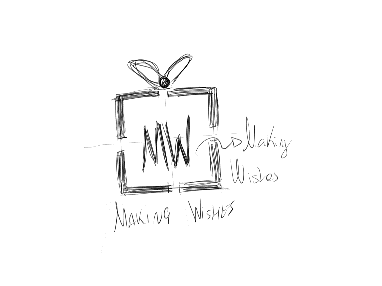 MW
Making
Wishes
MAKING WISHES